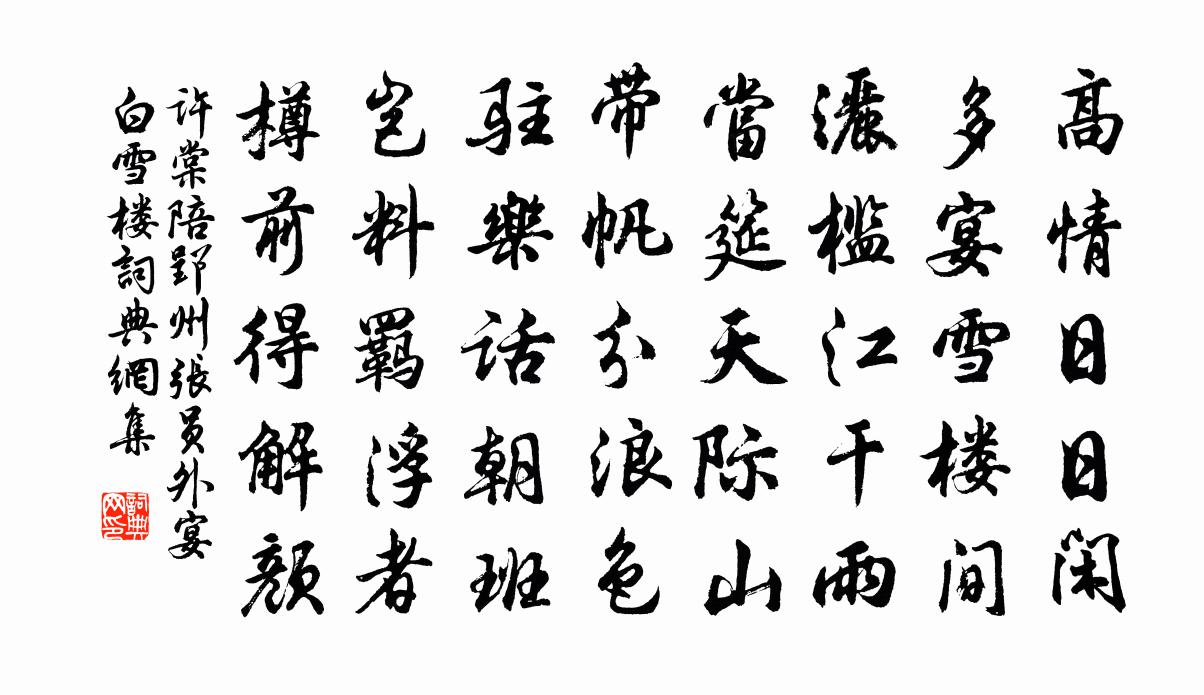 高情日日闲
多宴雪楼间
灑槛江干雨
當筵天际山
带帆分浪色
驻樂话朝班
岂料羁浮者
樽前得解颜
许棠陪郢州张员外宴
白雪楼詞典網集
詞典网印